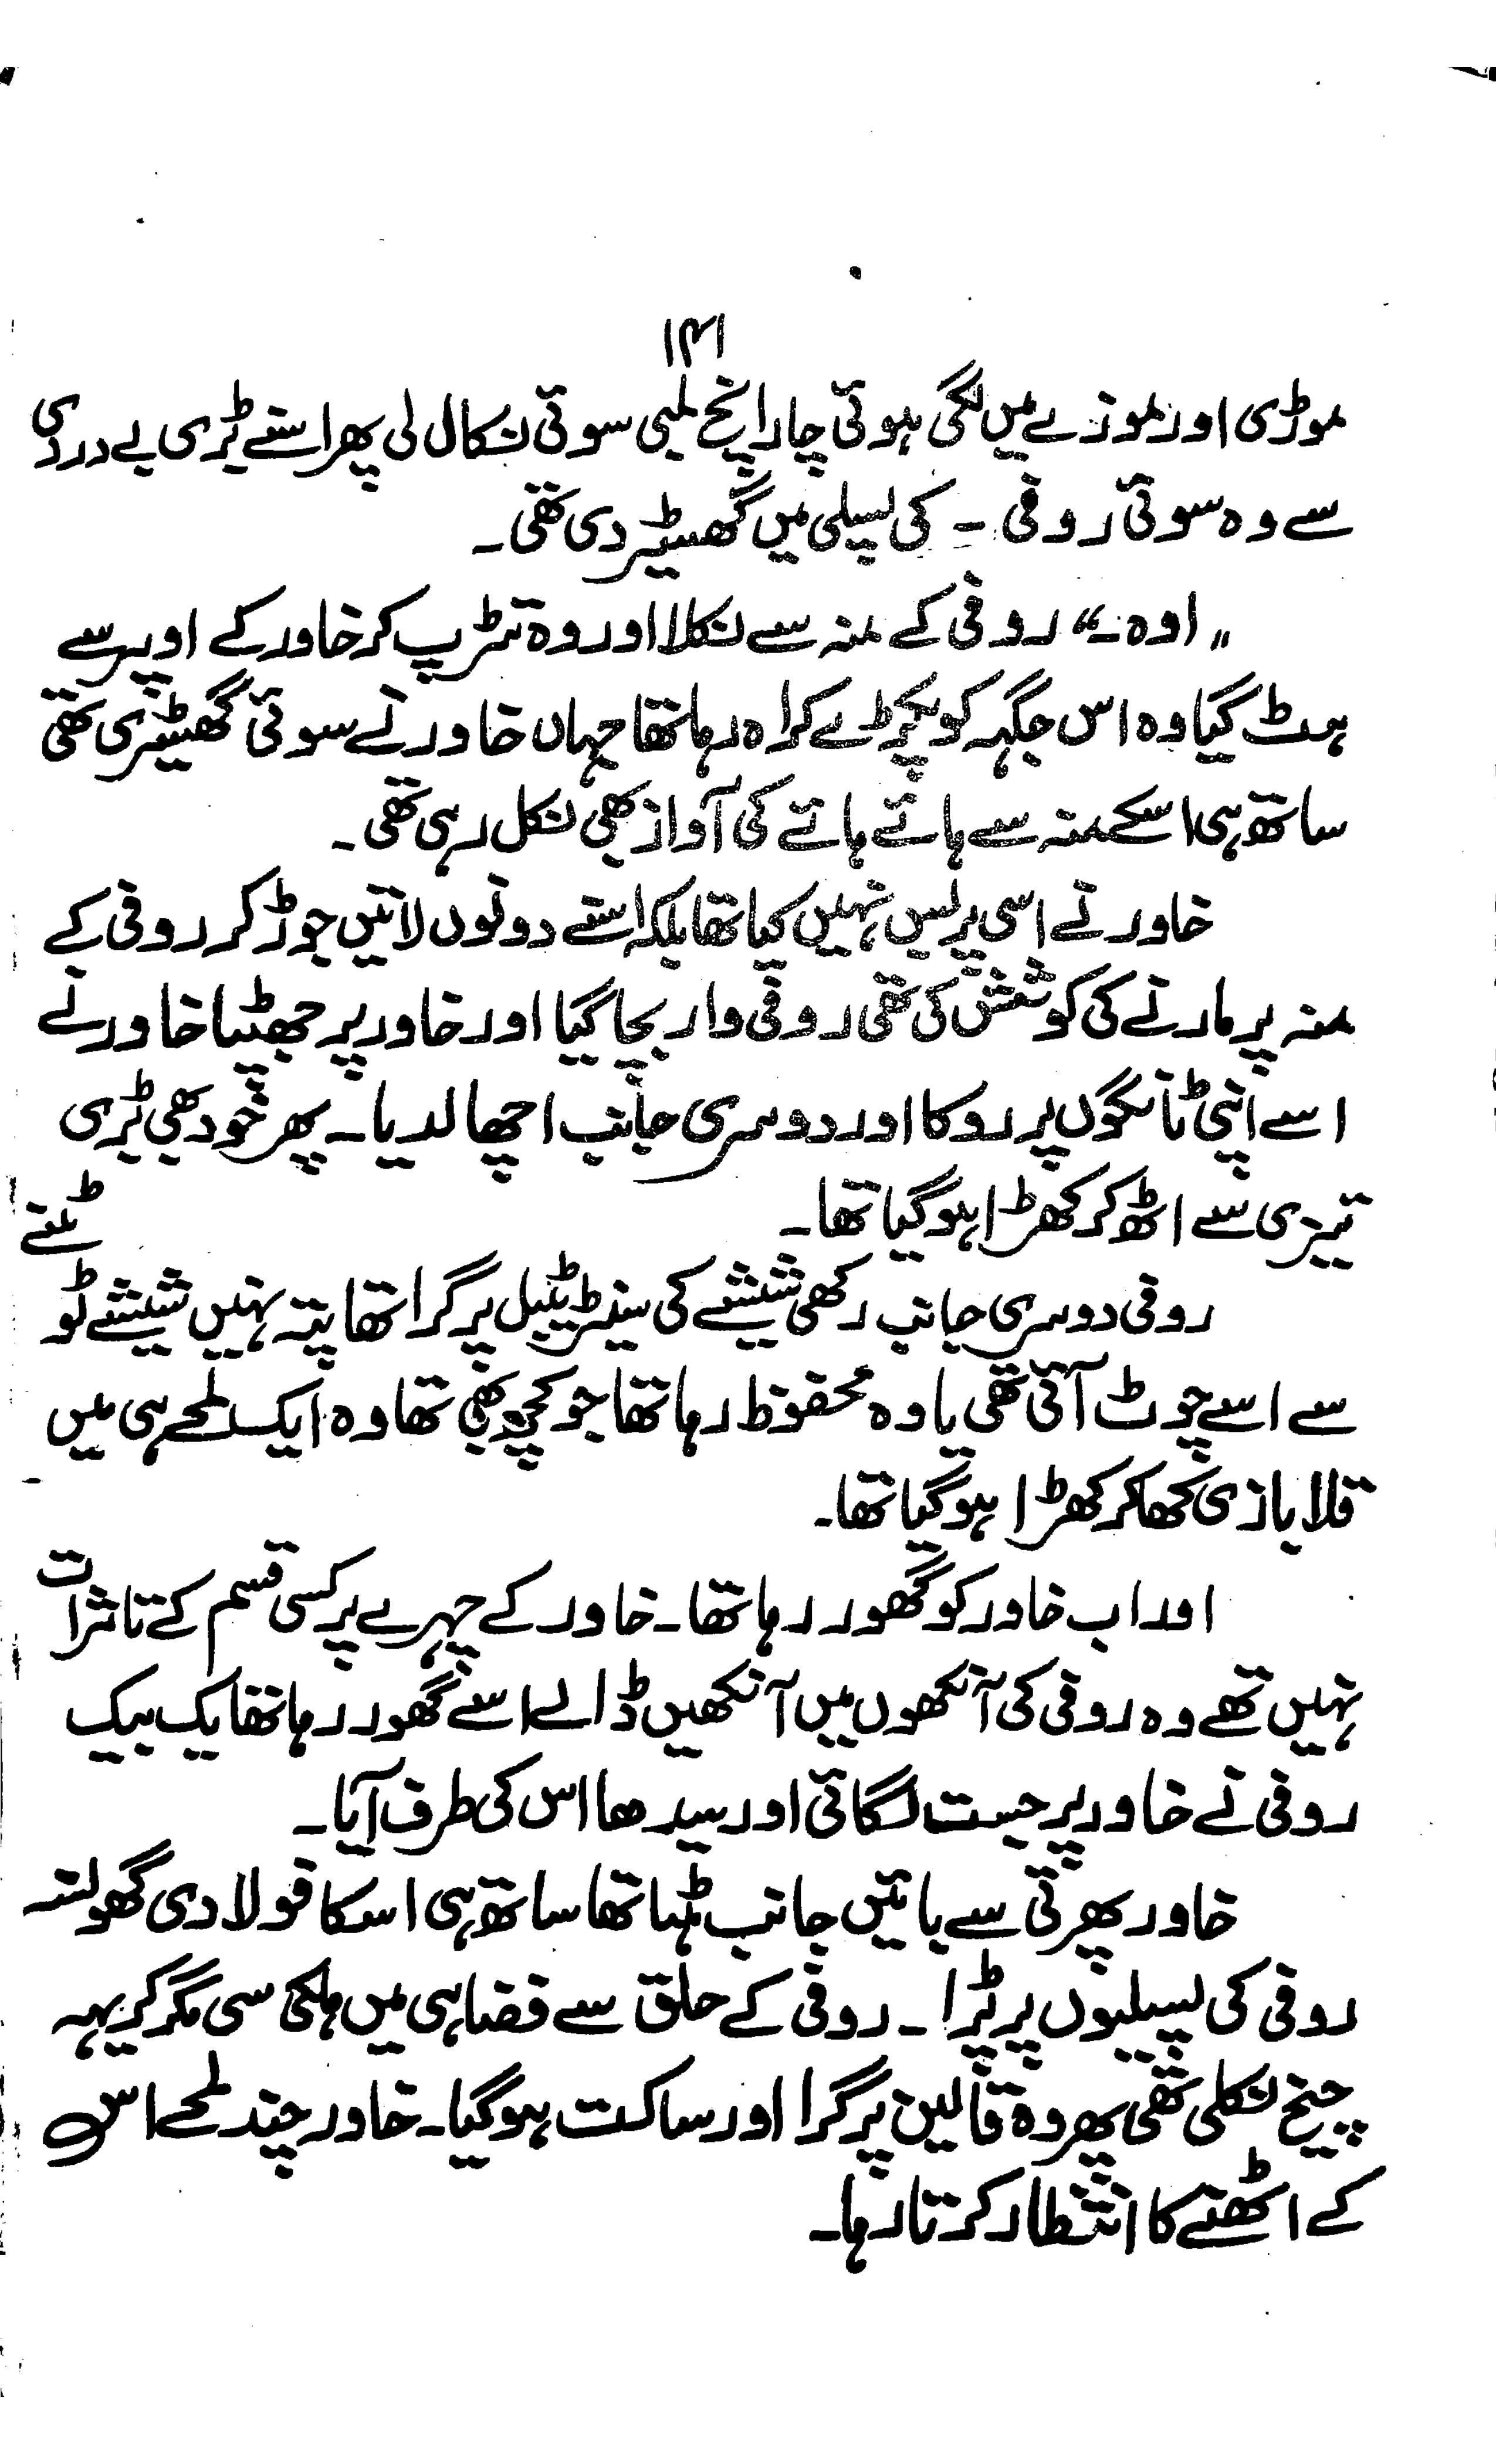 ۱۴۱
موڑی اور موزے میں لگی ہوئی چار انچ لمبی سوئی نکال لی پھر اسنے بڑی بے دردی
سے وہ سوئی روفی - کی پسلی میں گھسیڑ دی تھی۔
"اوہ۔" روفی کے منہ سے نکلا اور وہ تڑپ کر خاور کے اوپر سے
ہٹ گیا وہ اس جگہ کو پکڑے کراہ رہا تھا جہاں خاور نے سوئی گھسیڑی تھی
ساتھ ہی اسکے منہ سے ہائے ہائے کی آواز بھی نکل رہی تھی۔
خاور نے اسی پر بس نہیں کیا تھا بلکہ اسنے دونوں لاتیں جوڑ کر روفی کے
منہ پر مارنے کی کوشش کی تھی روفی وار بچا گیا اور خاور پر جھپٹا خاور نے
اسے اپنی ٹانگوں پر روکا اور دوسری جانب اچھالدیا۔ پھر خود بھی بڑی
تیزی سے اٹھ کر کھڑا ہو گیا تھا۔
روفی دوسری جانب رکھی شیشے کی سینٹر ٹیبل پر گرا تھا پتہ نہیں شیشے ٹوٹنے
سے اسے چوٹ آئی تھی یا وہ محفوظ رہا تھا جو کچھ بھی تھا وہ ایک لمحے ہی میں
قلابازی کھا کر کھڑا ہو گیا تھا۔
اور اب خاور کو گھور رہا تھا۔ خاور کے چہرے پر کسی قسم کے تاثرات
نہیں تھے وہ روفی کی آنکھوں میں آنکھیں ڈالے اسے گھور رہا تھا یک بیک
روفی نے خاور پر جست لگائی اور سیدھا اس کی طرف آیا۔
خاور پھرتی سے بائیں جانب ہٹا تھا ساتھ ہی اسکا فولادی گھونسہ
روفی کی پسلیوں پر پڑا۔ روفی کے حلق سے فضا ہی میں ہلکی سی مگر کریہہ
چیخ نکلی تھی پھر وہ قالین پر گرا اور ساکت ہو گیا۔ خاور چند لمحے اس
کے اٹھنے کا انتظار کرتا رہا۔